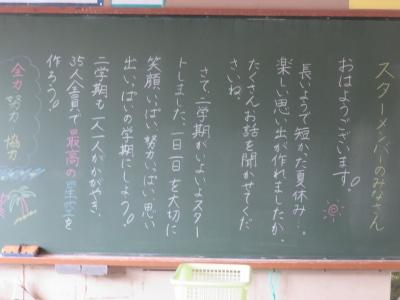 スターメンバーのみなさん
おはようございます。
長いようで短かた夏休み…。
楽しい思い出が作れましたか。
たくさんお話を聞かせてくだ
さいね。
さて、二学期がいよいよスター
トしました。一日一日を大切に
笑顔いっぱい努力いっぱい思い
出いっぱいの学期にしよう!
二学期も一人一人がかがやき、
35人全員で最高の星空を
作ろう!
全力 努力 協力